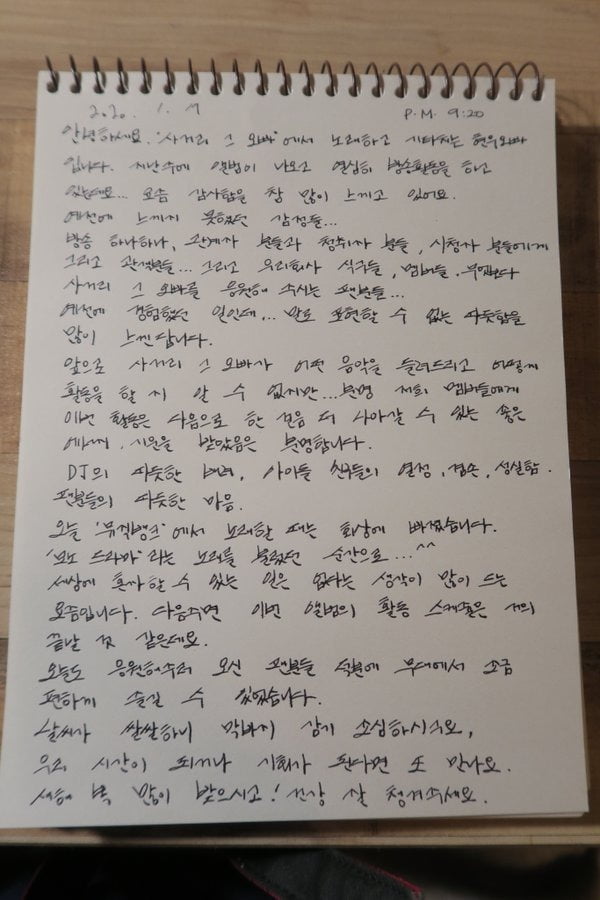 2020. 1. 17 P.M. 9:20
안녕하세요. '사거리 그 오빠'에서 노래하고 기타치는 현우오빠
입니다. 지난주에 앨범이 나오고 열심히 방송활동을 하고
있는데요... 요즘 감사함을 참 많이 느끼고 있어요.
예전에 느끼지 못했던 감정들...
방송 하나하나, 관계자 분들과 청취자 분들, 시청자 분들에게
그리고 관객분들... 그리고 우리회사 식구들, 멤버들. 무엇보다
사거리 그 오빠를 응원해 주시는 팬분들...
예전에 경험했던 일인데... 말로 표현할 수 없는 따듯함을
많이 느낀답니다.
앞으로 사거리 그 오빠가 어떤 음악을 들려드리고 어떻게
활동을 할 지 알 수 없지만...분명 저희 멤버들에게
이번 활동은 다음으로 한 걸음 더 나아갈 수 있는 좋은
에너지, 기운을 받았음은 분명합니다.
DJ의 따듯한 배려, 아이돌 친구들의 열정, 겸손, 성실함.
팬분들의 따듯한 마음.
오늘 '뮤직뱅크'에서 노래할 때는 회상에 빠졌습니다.
'모노 드라마'라는 노래를 불렀던 순간으로...^^
세상에 혼자할 수 있는 일은 없다는 생각이 많이 드는
요즘입니다. 다음주면 이번 앨범의 활동 스케줄은 거의
끝날 것 같은데요.
오늘도 응원해주러 오신 팬분들 덕분에 무대에서 조금
편하게 즐길 수 있었습니다.
날씨가 쌀쌀하니 막바지 감기 조심하시구요,
우리 시간이 되거나 기회가 된다면 또 만나요.
새해 복 많이 받으시고! 건강 잘 챙겨주세요.